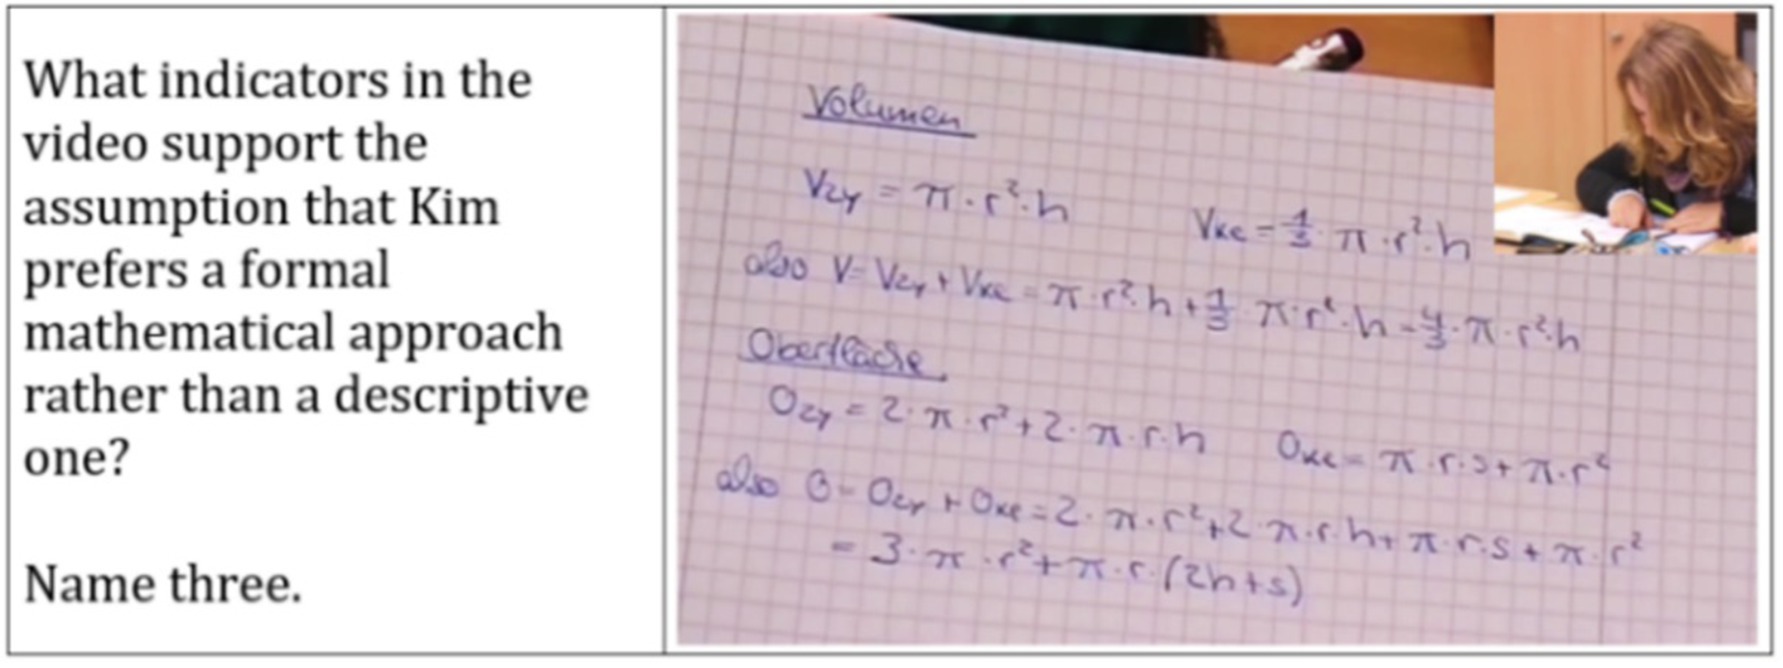 What indicators in the
video support the
assumption that Kim
prefers a formal
mathematical approach
rather than a descriptive
one?
Name three.
Volumen
Vzy = π · r² · h
VKe = 1/3 · π · r² · h
also V = Vzy + VKe = π · r² · h + 1/3 π · r² · h = 4/3 · π · r² · h
Oberfläche
Ozy = 2 · π · r² + 2 · π · r · h
OKe = π · r · s + π · r²
also O = Ozy + OKe = 2 · π · r² + 2 · π · r · h + π · r · s + π · r²
= 3 · π · r² + π · r · (2h + s)